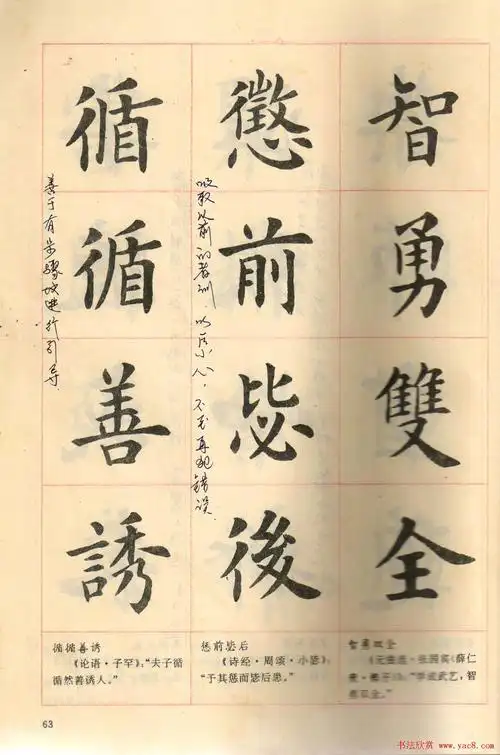 智勇雙全
懲前毖後
吸取以前的教训 以后小心，不至再犯错误.
循循善誘
善于有步骤地进行引导.
智勇双全
武艺，智
惩前毖后
《诗经·周颂·小毖》：
“予其惩而毖后患。”
循循善诱
《论语·子罕》：“夫子循
循然善诱人。”
63
书法欣赏 www.yac8.com